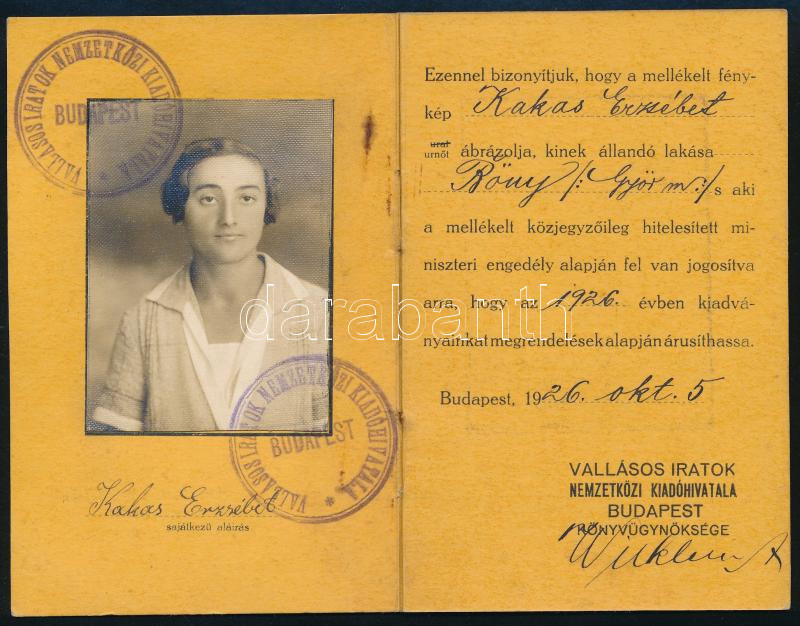 VALLÁSOS IRATOK NEMZETKÖZI KIADÓHIVATALA *
BUDAPEST
VALLÁSOS IRATOK NEMZETKÖZI KIADÓHIVATALA *
BUDAPEST
Kakas Erzsébet
sajátkezű aláirás
Ezennel bizonyítjuk, hogy a mellékelt fény-
kép Kakas Erzsébet
urat
urnőt ábrázolja, kinek állandó lakása
Bőny /: Győr m :/ s aki
a mellékelt közjegyzőileg hitelesített mi-
niszteri engedély alapján fel van jogosítva
arra, hogy az 1926. évben kiadvá-
nyainkat megrendelések alapján árusíthassa.
Budapest, 1926. okt. 5
VALLÁSOS IRATOK
NEMZETKÖZI KIADÓHIVATALA
BUDAPEST
KÖNYVÜGYNÖKSÉGE
darabanth